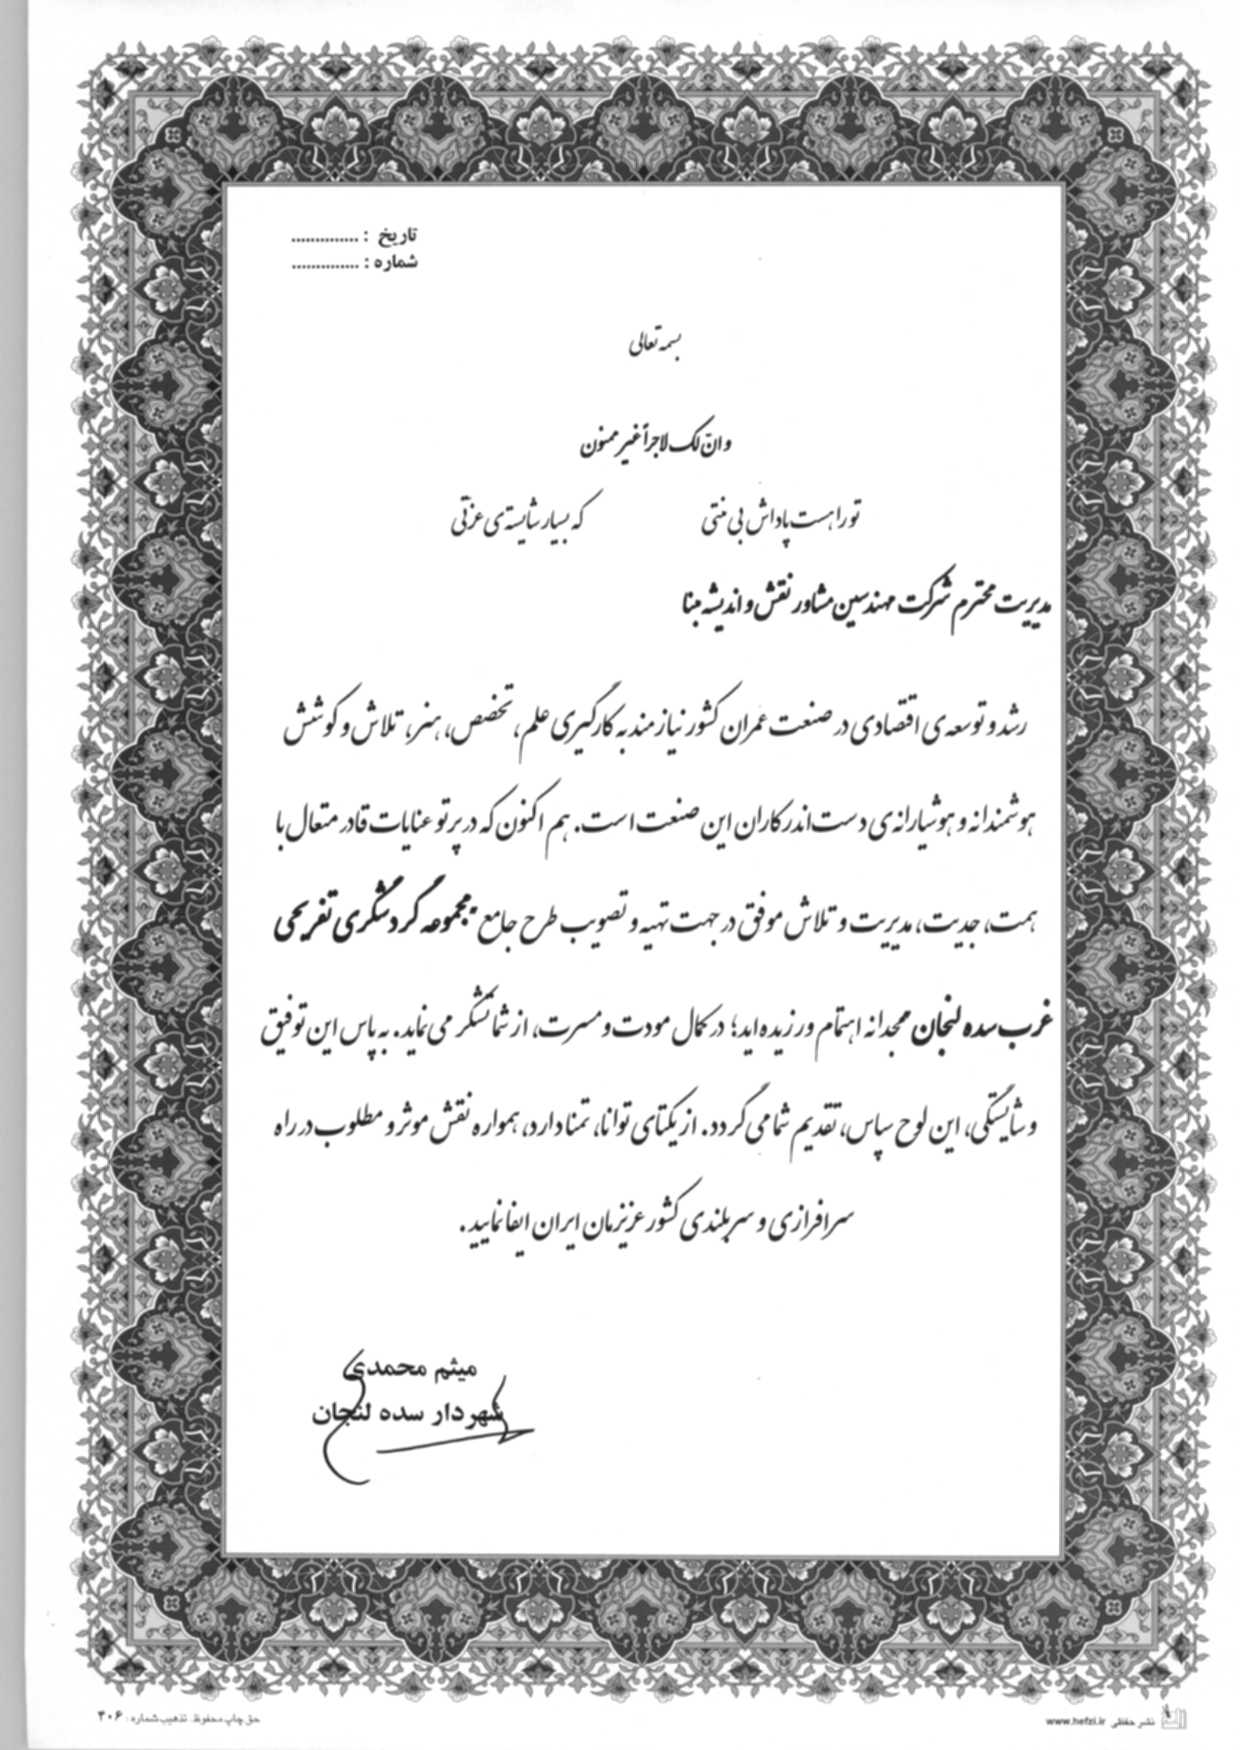 تاریخ : ..............
شماره : ..............
بسمه تعالی
و انّ لک لاجراً غیر ممنون
تو را هست پاداش بی منتی که بسیار شایسته ی عزتی
مدیریت محترم شرکت مهندسین مشاور نقش و اندیشه مبنا
رشد و توسعه ی اقتصادی در صنعت عمران کشور نیازمند به کارگیری علم، تخصص، هنر، تلاش و کوشش
هوشمندانه و هوشیارانه ی دست اندرکاران این صنعت است. هم اکنون که در پرتو عنایات قادر متعال با
همت، جدیت، مدیریت و تلاش موفق در جهت تهیه و تصویب طرح جامع "مجموعه گردشگری تفریحی
غرب سده لنجان مجدانه اهتمام ورزیده اید؛ در کمال مودت و مسرت، از شما تشکر می نماید. به پاس این توفیق
و شایستگی، این لوح سپاس، تقدیم شما می گردد. از یکتای توانا، تمنا دارد، همواره نقش موثر و مطلوب در راه
سرافرازی و سربلندی کشور عزیزمان ایران ایفا نمایید.
میثم محمدی
شهردار سده لنجان
حق چاپ محفوظ. تذهیب شماره : ۴۰۶
نشر حفظی www.hefzi.ir